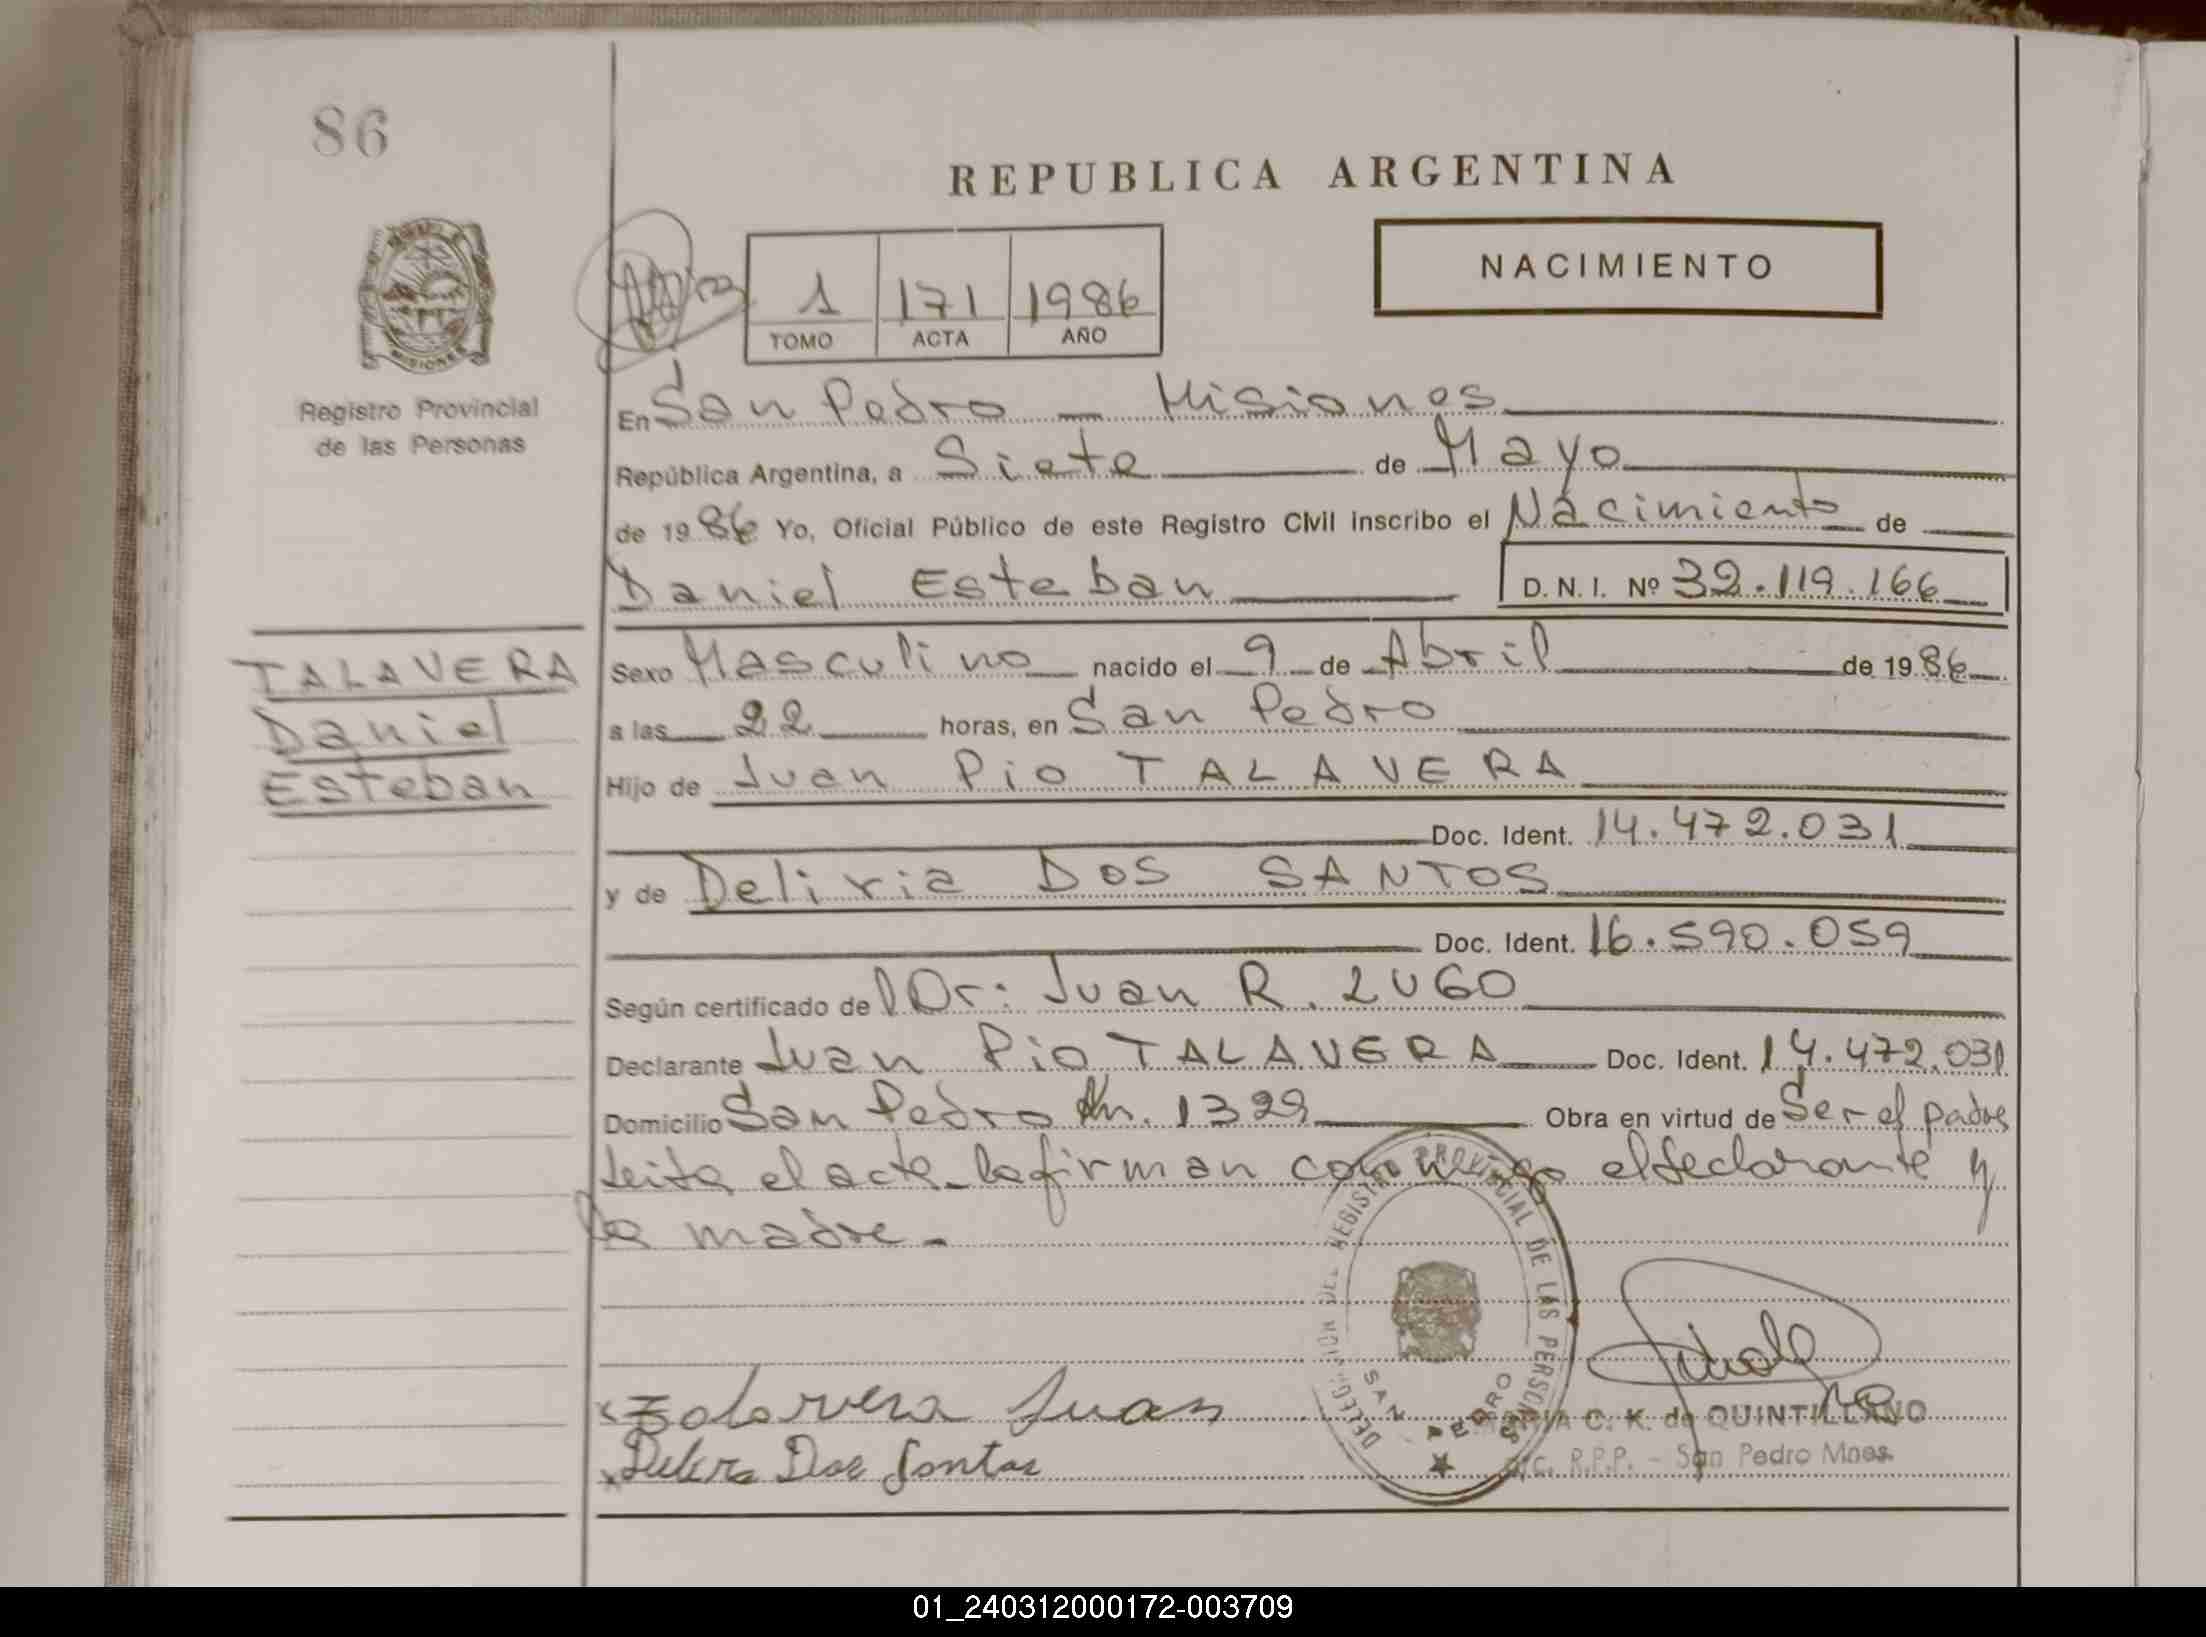 86
REPUBLICA ARGENTINA
NACIMIENTO
1 171 1986
TOMO ACTA AÑO
MISIONES
Registro Provincial
de las Personas
En San Pedro — Misiones
República Argentina, a Siete de Mayo
de 1986 Yo, Oficial Público de este Registro Civil inscribo el Nacimiento de
Daniel Esteban D.N.I. Nº 32.119.166
TALAVERA
Daniel
Esteban
Sexo Masculino nacido el 9 de Abril de 1986
a las 22 horas, en San Pedro
Hijo de Juan Pio TALAVERA
Doc. Ident. 14.472.031
y de Deliria DOS SANTOS
Doc. Ident. 16.590.059
Según certificado de Dr: Juan R. LUGO
Declarante Juan Pio TALAVERA Doc. Ident. 14.472.031
Domicilio San Pedro 1329 Obra en virtud de Ser el padre
leita el acta la firman conmigo el declarante y
la madre.-
DELEGACION DEL REGISTRO PROVINCIAL DE LAS PERSONAS
SAN PEDRO
Talavera Juan
Dos Santos
MARIA C. K. de QUINTILLANO
R.P.P. - San Pedro Mnes.
01_240312000172-003709